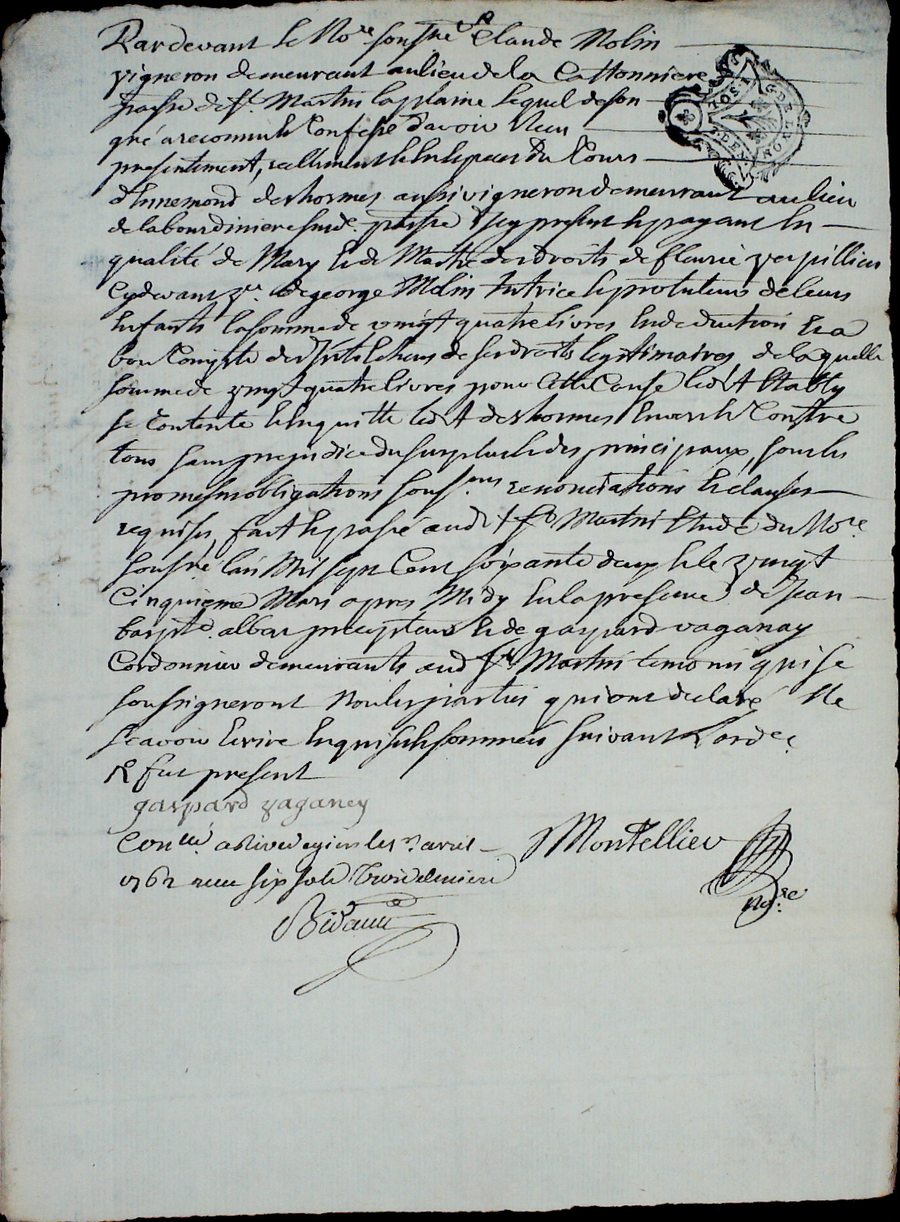 Pardevant le No.re soussné Claude Molin
vigneron demeurant au lieu de la Cattonniere
parsse de St. Martin la plaine lequel de son
gré a reconnu & Confessé d'avoir Recu
presentement, reellement & en Especes du Cours
d'Ennemond deshormes aussi vigneron demeurant au lieu
de la bourdiniere sus de. parsse Icy present & payant En
qualité de Mary & de Maitre des Droits de fleurie verpillieu
Cydevant ve. de george Molin tutrice & protuteur de leurs
Enfants la somme de vingt quatre livres En deduction & a
bon Compte des de ses droits legitimaires de laquelle
somme de vingt quatre livres pour Cette Cause led.t
se Contente & En quitte led.t deshormes Envers & Contre
tous sans prejudice du surplus & des principaux, sous les
promesses obligations renonciations & clauses
requises, fait & passé aud.t St Martin Etude du No.re
soussné l'an Mil sept Cent soixante deux & le vingt
Cinquieme Mars apres Midy En la presence de Jean
bapte. albar precepteur & de gaspard vaganay
Cordonnier demeurants aud St Martin temoins qui se
soussigneront Non les parties qui ont declaré Ne
scavoir Ecrire Enquises & sommées suivant L'ord.ce
R fut present
gaspard vaganey
Con.llé a Rivedegier le avril
1762 Recu six sols
Montellier
No.re